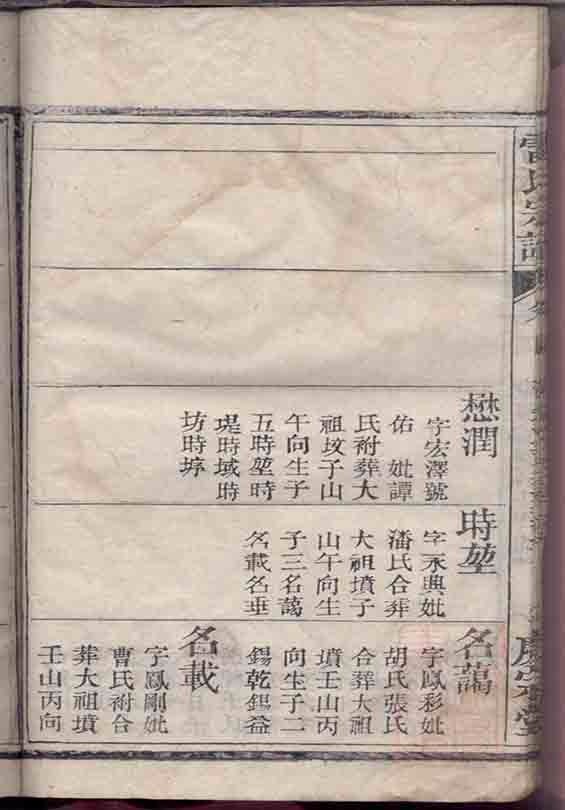 氏宗譜
懋潤
字宏澤號
佑 妣譚
氏祔葬大
祖坟子山
午向生子
五時堃時
堤時域時
坊時埻
時堃
字永典妣
潘氏合葬
大祖墳子
山午向生
子三名蔼
名載名垂
名蔼
字鳳彩妣
胡氏張氏
合葬大祖
墳壬山丙
向生子二
錫乾錫益
名載
字鳳剛妣
曹氏祔合
葬大祖墳
壬山丙向